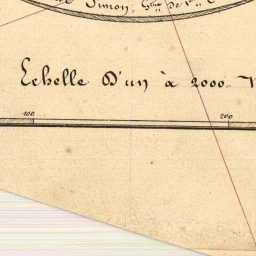 Simon, Gme De
Echelle D'un à 2000.
100 200